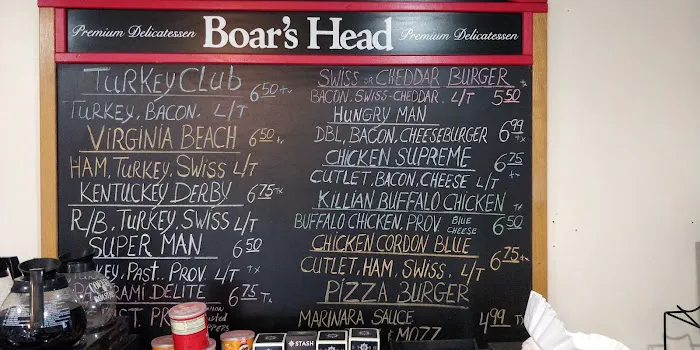 Premium Delicatessen Boar's Head Premium Delicatessen
TURKEY CLUB 6.50 tx
TURKEY, BACON, L/T
VIRGINIA BEACH 6.50 tx
HAM, TURKEY, SWISS L/T
KENTUCKY DERBY 6.75 TX
R/B, TURKEY, SWISS L/T
SUPER MAN 6.50
KEY, PAST.. PROV. L/T TX
RAMI DELITE 6.75 TX
ST. PR
SWISS OR CHEDDAR BURGER
BACON, SWISS-CHEDDAR. L/T 5.50
HUNGRY MAN
DBL, BACON, CHEESEBURGER 6.99 TX
CHICKEN SUPREME 6.75
CUTLET, BACON, CHEESE L/T
KILLIAN BUFFALO CHICKEN TX
BUFFALO CHICKEN, PROV BLUE CHEESE 6.50
CHICKEN CORDON BLUE
CUTLET, HAM, SWISS, L/T 6.75 tx
PIZZA BURGER
MARINARA SAUCE 4.99 TX
MOZZ
STASH